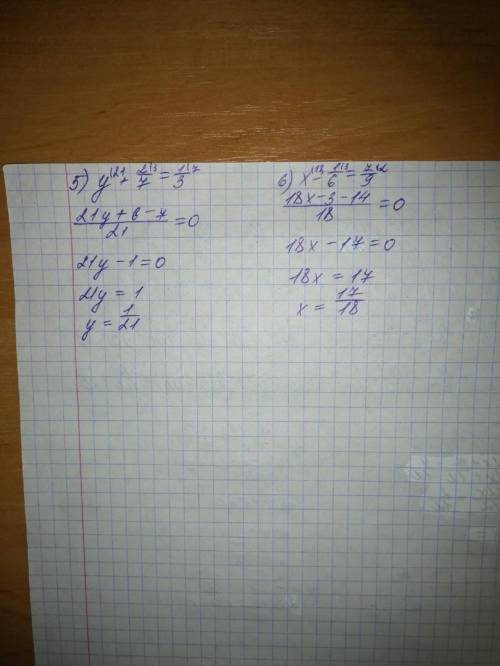 5) y^{\21} + \frac{2}{7}^{\3} = \frac{1}{3}^{\7}
\frac{21y + 6 - 7}{21} = 0
21y - 1 = 0
21y = 1
y = \frac{1}{21}
6) x^{\18} - \frac{1}{6}^{\3} = \frac{7}{9}^{\2}
\frac{18x - 3 - 14}{18} = 0
18x - 17 = 0
18x = 17
x = \frac{17}{18}